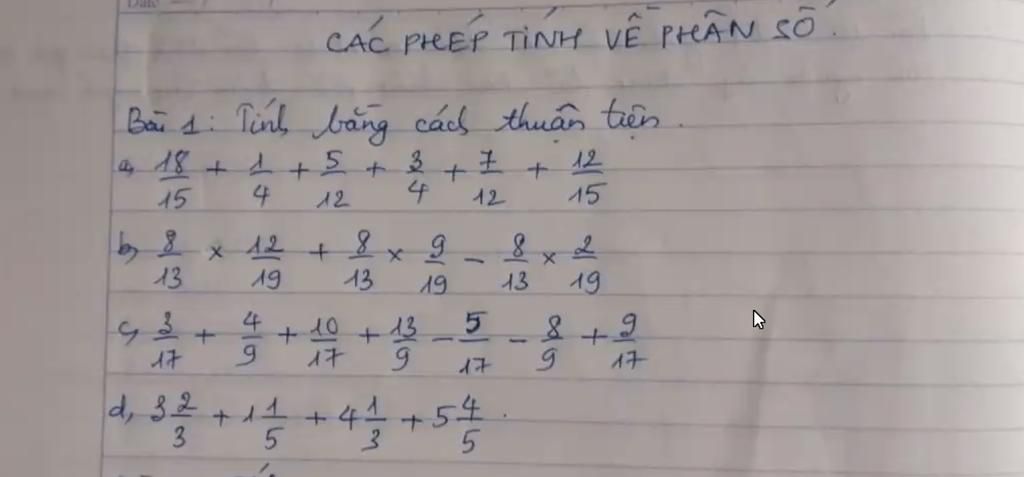 CÁC PHÉP TÍNH VỀ PHÂN SỐ.
Bài 1: Tính bằng cách thuận tiện.
a, 18/15 + 1/4 + 5/12 + 3/4 + 7/12 + 12/15
b, 8/13 × 12/19 + 8/13 × 9/19 - 8/13 × 2/19
c, 3/17 + 4/9 + 10/17 + 13/9 - 5/17 - 8/9 + 9/17
d, 3 2/3 + 1 1/5 + 4 1/3 + 5 4/5.